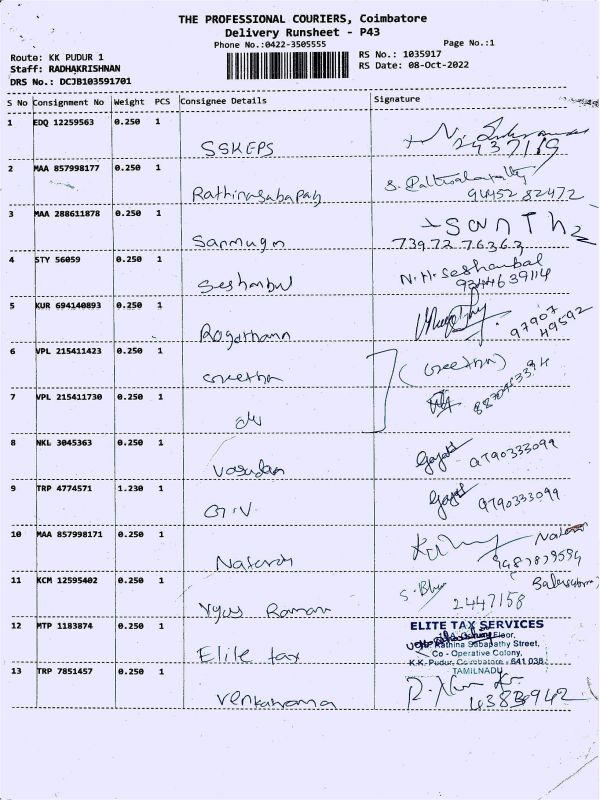 THE PROFESSIONAL COURIERS, Coimbatore
Delivery Runsheet - P43
Phone No.:0422-3505555
Page No.:1
Route: KK PUDUR 1
RS No.: 1035917
Staff: RADHAKRISHNAN
RS Date: 08-Oct-2022
DRS No.: DCJB103591701
S No Consignment No Weight PCS Consignee Details Signature
1 EDQ 12259563 0.250 1
SSKEPS 2437119
2 MAA 857998177 0.250 1
Rathinasabapady
3 MAA 288611878 0.250 1
Sanmugn SANTH
73972 76363
4 STY 56059 0.250 1
Seshanbul N.H. Seshanbal
9344639114
5 KUR 694140893 0.250 1
97907
49592
6 VPL 215411423 0.250 1
Geetha (Geetha)
7 VPL 215411730 0.250 1
8 NKL 3045363 0.250 1
Vasudan 9790333099
9 TRP 4774571 1.230 1
G.I.V 9790333099
10 MAA 857998171 0.250 1
11 KCM 12595402 0.250 1
Vyas Raman 2447158
12 MTP 1183874 0.250 1
ELITE TAX SERVICES
Floor,
Rathina Sabapathy Street,
Co - Operative Colony,
Elite tax K.K. Pudur, Coimbatore - 641 038.
TAMILNADU
13 TRP 7851457 0.250 1
Venkatrama